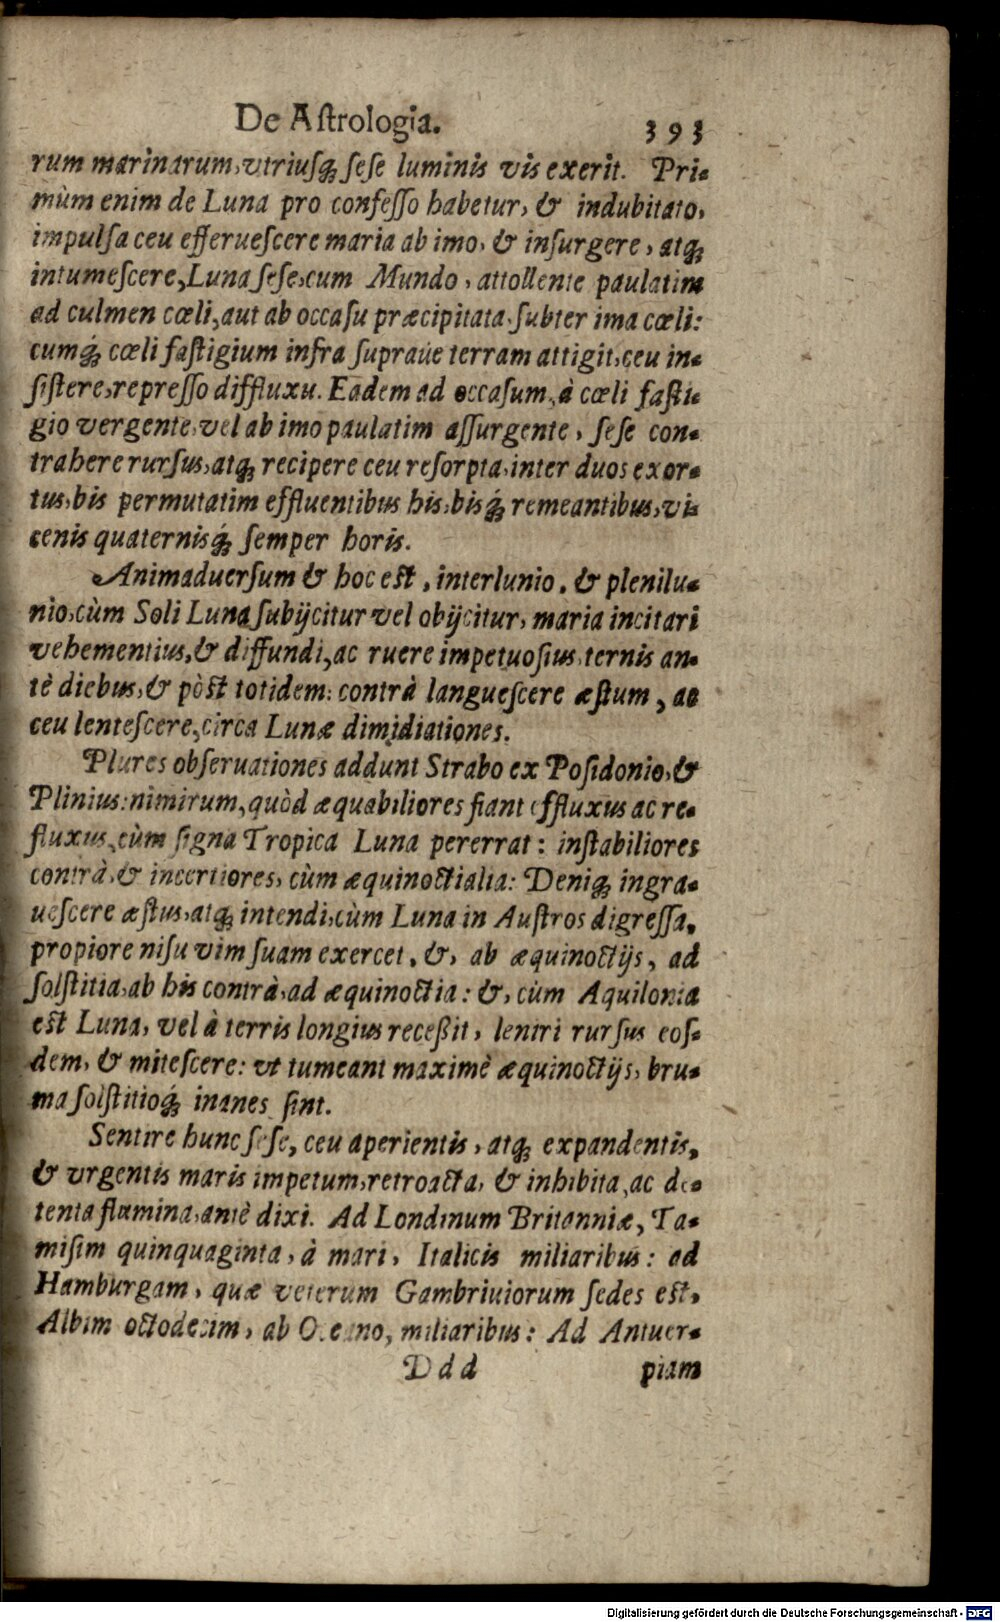 De Aſtrologia. 393
rum marinarum, vtriuſq́; ſeſe luminis vis exerit. Pri-
mùm enim de Luna pro confeſſo habetur, & indubitato,
impulſa ceu efferueſcere maria ab imo, & inſurgere, atq;
intumeſcere, Luna ſeſe, cum Mundo, attollente paulatim
ad culmen cœli, aut ab occaſu præcipitata ſubter ima cœli:
cumq́; cœli faſtigium infra ſupraùe terram attigit, ceu in-
ſiſtere, repreſſo diffluxu. Eadem ad occaſum, à cœli faſti-
gio vergente, vel ab imo paulatim aſſurgente, ſeſe con-
trahere rurſus, atq; recipere ceu reſorpta, inter duos exor-
tus, bis permutatim effluentibus his, bisq́; remeantibus, vi-
cenis quaternisq́; ſemper horis.
Animaduerſum & hoc eſt, interlunio, & plenilu-
nio, cùm Soli Luna ſubijcitur vel obijcitur, maria incitari
vehementius, & diffundi, ac ruere impetuoſius, ternis an-
tè diebus, & pòſt totidem: contrà langueſcere æſtum, ac
ceu lenteſcere, circa Lunæ dimidiationes.
Plures obſeruationes addunt Strabo ex Poſidonio, &
Plinius: nimirum, quòd æquabiliores fiant effluxus ac re-
fluxus, cùm ſigna Tropica Luna pererrat: inſtabiliores
contrà, & incertiores, cùm æquinoctialia: Deniq; ingra-
ueſcere æſtus, atq; intendi, cùm Luna in Auſtros digreſſa,
propiore niſu vim ſuam exercet, &, ab æquinoctijs, ad
ſolſtitia, ab his contrà, ad æquinoctia: &, cùm Aquilonia
eſt Luna, vel à terris longius receßit, leniri rurſus eoſ-
dem, & miteſcere: vt tumeant maximè æquinoctijs, bru-
ma ſolſtitioq́; inanes ſint.
Sentire hunc ſeſe, ceu aperientis, atq; expandentis,
& vrgentis maris impetum, retroacta, & inhibita, ac de-
tenta flumina, antè dixi. Ad Londinum Britanniæ, Ta-
miſim quinquaginta, à mari, Italicis miliaribus: ad
Hamburgam, quæ veterum Gambriuiorum ſedes eſt,
Albim octodecim, ab Oceano, miliaribus: Ad Antuer-
Ddd piam
Digitalisierung gefördert durch die Deutsche Forschungsgemeinschaft - DFG